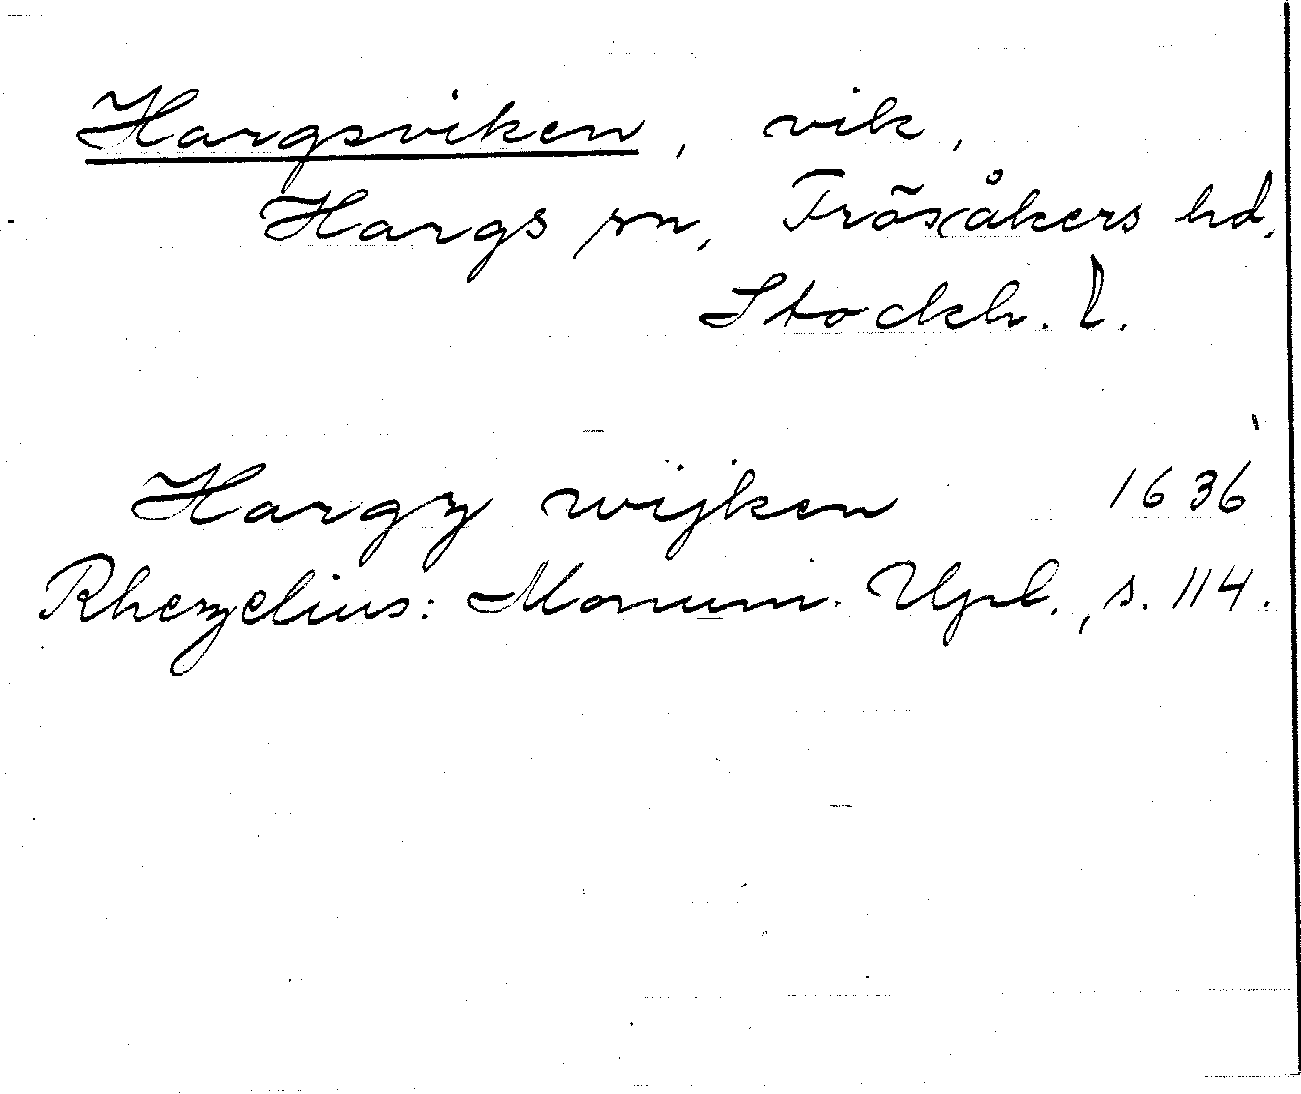 Hargsviken, vik,
Hargs sn, Frösåkers hd.
Stockh. l.
Hargz wijken 1636
Rhezelius: Monum. Upl., s. 114.